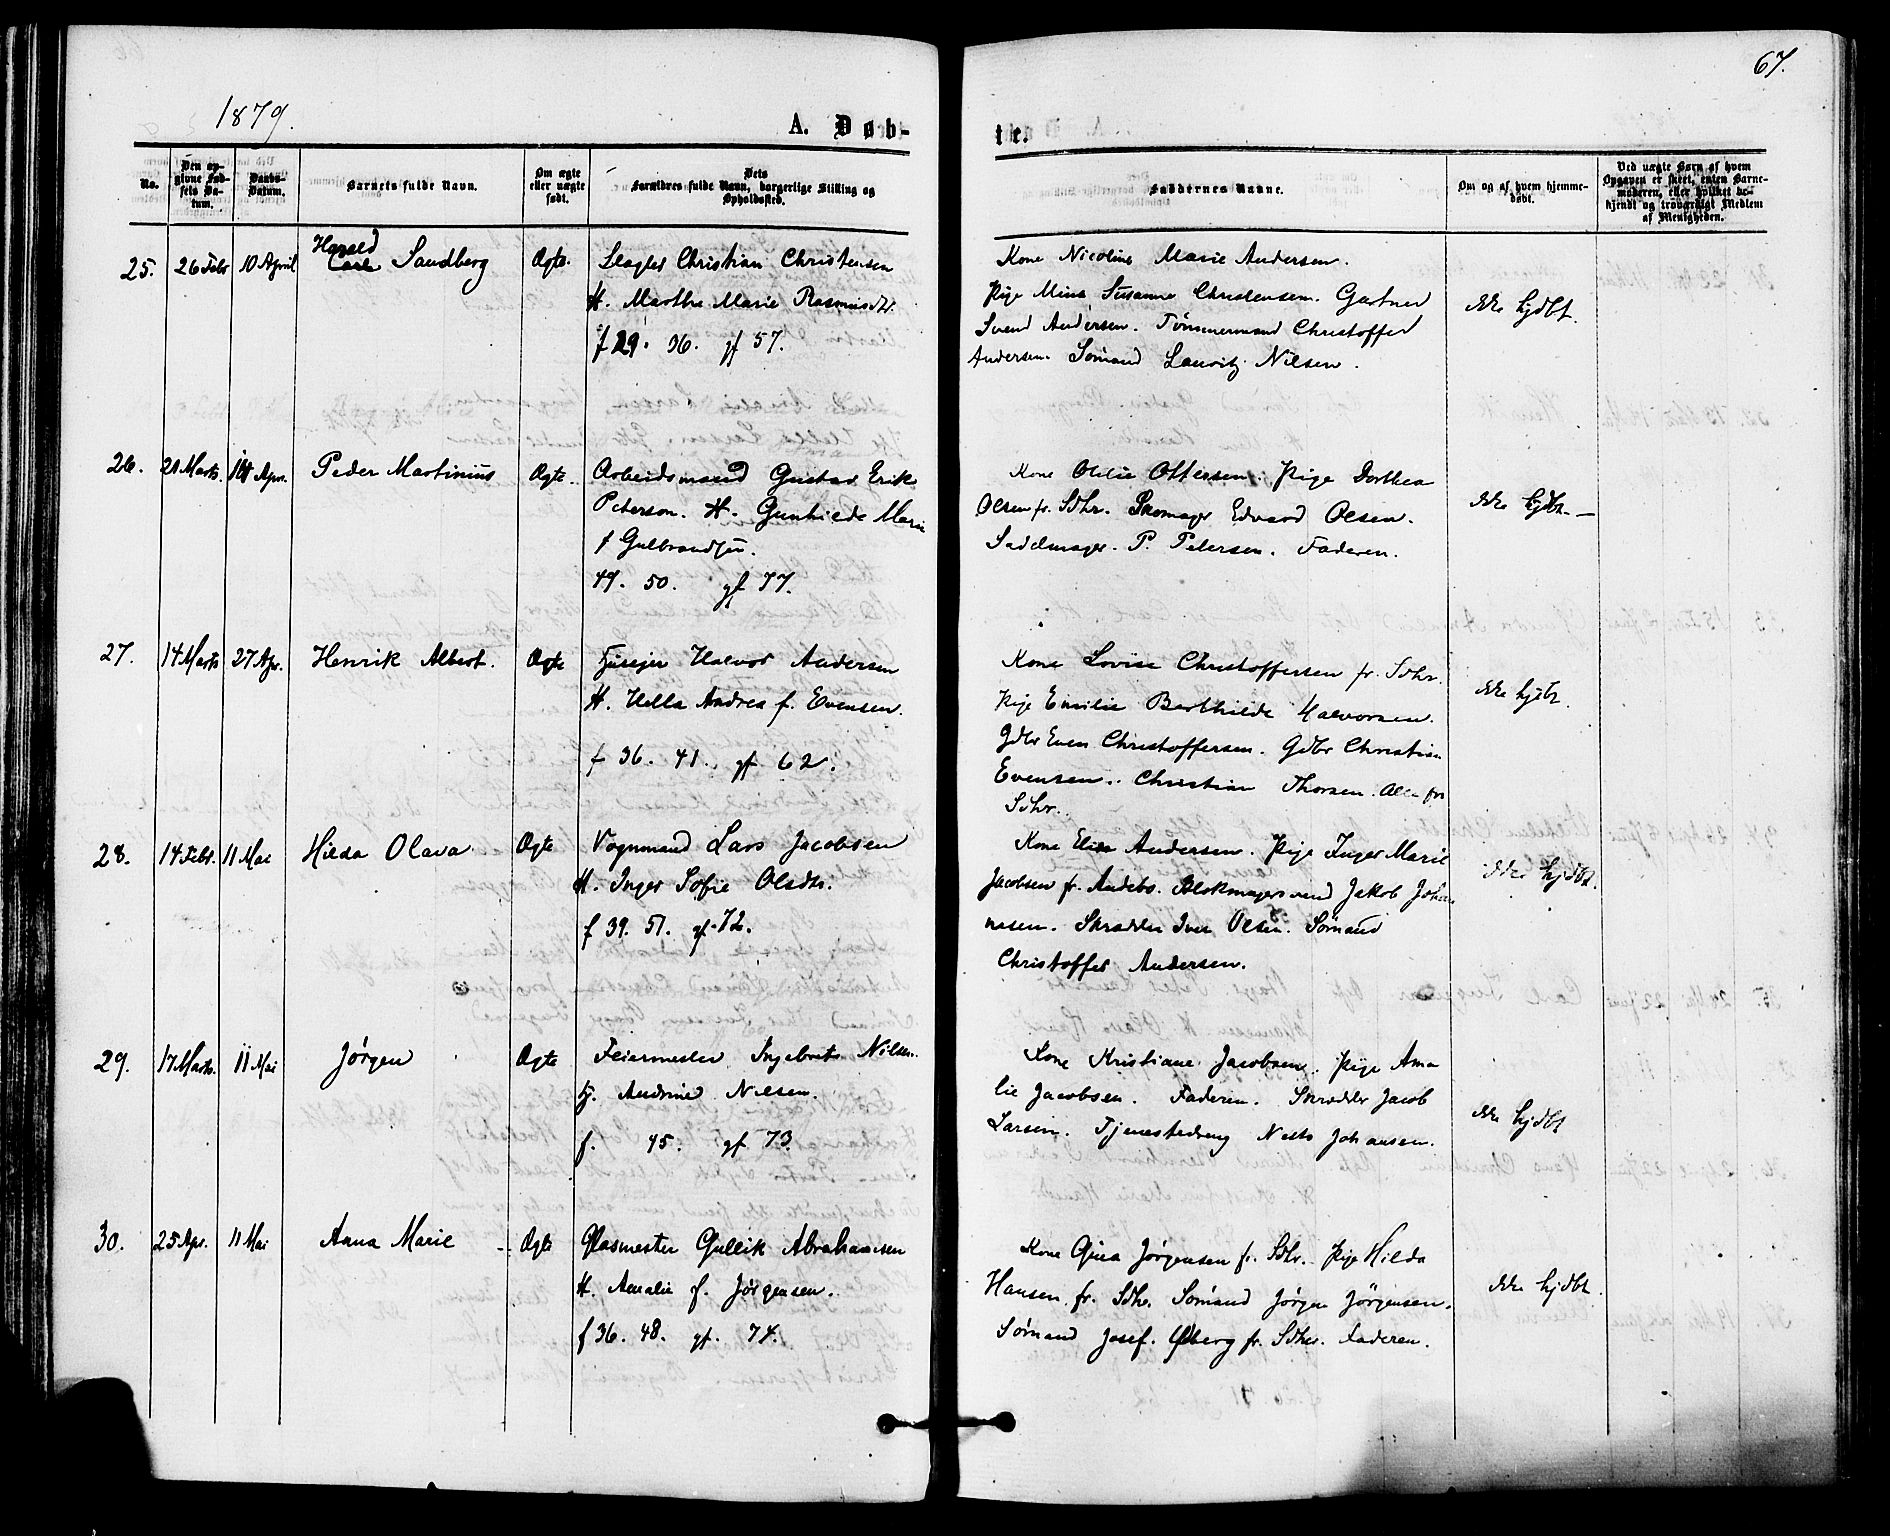 1879.
67.
A. Døb-
te.
No.
Den op-
givne Fød-
sels Da-
tum.
Daabs-
Datum.
Barnets fulde Navn.
Om ægte
eller uægte
født.
Dets
Forældres fulde Navn, borgerlige Stilling og
Opholdssted.
Faddernes Navne.
Om og af hvem hjemme-
døbt.
Ved uægte Børn af hvem
Opgaven er skeet, enten Barne-
moderen, eller hvilket be-
kjendt og troværdigt Medlem
af Menigheden.
25. 26 Febr 10 April Harald Sandberg Ægte.
Slagter Christian Christensen
H. Marthe Marie Rasmusdtr.
f 29. 36. gf 57.
Kone Nicoline Marie Andersen.
Pige Mina Susanne Christensen. Gartner
Svend Andersen. Tømmermand Christoffer
Andersen. Sømand Lauritz Nilsen.
Ikke hjdbt.
26. 21 Marts. 14 Apr. Peder Martinius Ægte.
Arbeidsmand Gustav Erik
Peterson. H. Gunhilde Marie
f Gulbrandsen.
49. 50. gf 77.
Kone Otilie Ottersen. Pige Dorthea
Olsen fr. Sdhr. Skomager Edvard Olsen.
Sadelmager P. Petersen. Faderen.
Ikke hjdbt.
27. 14 Marts 27 Apr. Henrik Albert. Ægte
Huseier Halvor Andersen
H. Hella Andrea f. Evensen.
f 36. 41. gf 62.
Kone Lovise Christoffersen fr. Sdhr.
Pige Emilie Berthilde Halvorsen.
Gdbr Even Christoffersen. Gdbr Christian
Evensen. Christian Thorsen. Alle fr
Sdhr.
Ikke hjdbt.
28. 14 Febr. 11 Mai Hilda Olava Ægte
Vognmand Lars Jacobsen
H. Inger Sofie Olsdtr.
f 39. 51. gf. 72.
Kone Elise Andersen. Pige Inger Marie
Jacobsen fr. Andebo. Blokmagersvend Jakob Johan
nesen. Skrædder Iver Olsen. Sømand
Christoffer Andersen.
Ikke hjdbt.
29. 17 Marts. 11 Mai Jørgen Ægte
Feiermester Ingebret Nilsen.
H. Andrine Nilsen.
f. 45. gf 73.
Kone Kristiane Jacobsen. Pige Ama
lie Jacobsen. Faderen. Skrædder Jacob
Larsen. Tjenestedreng Johansen.
Ikke hjdbt
30. 25 Apr. 11 Mai Anna Marie Ægte
Glasmester Gullik Abrahamsen
H. Amalie f. Jørgensen.
f 36. 48. gf. 74.
Kone Gina Jørgensen fr. Sdhr. Pige Hilda
Hansen fr. Sdhr. Sømand Jørgen Jørgensen.
Sømand Josef. Øberg fr. Sdhr. Faderen.
Ikke hjdbt.